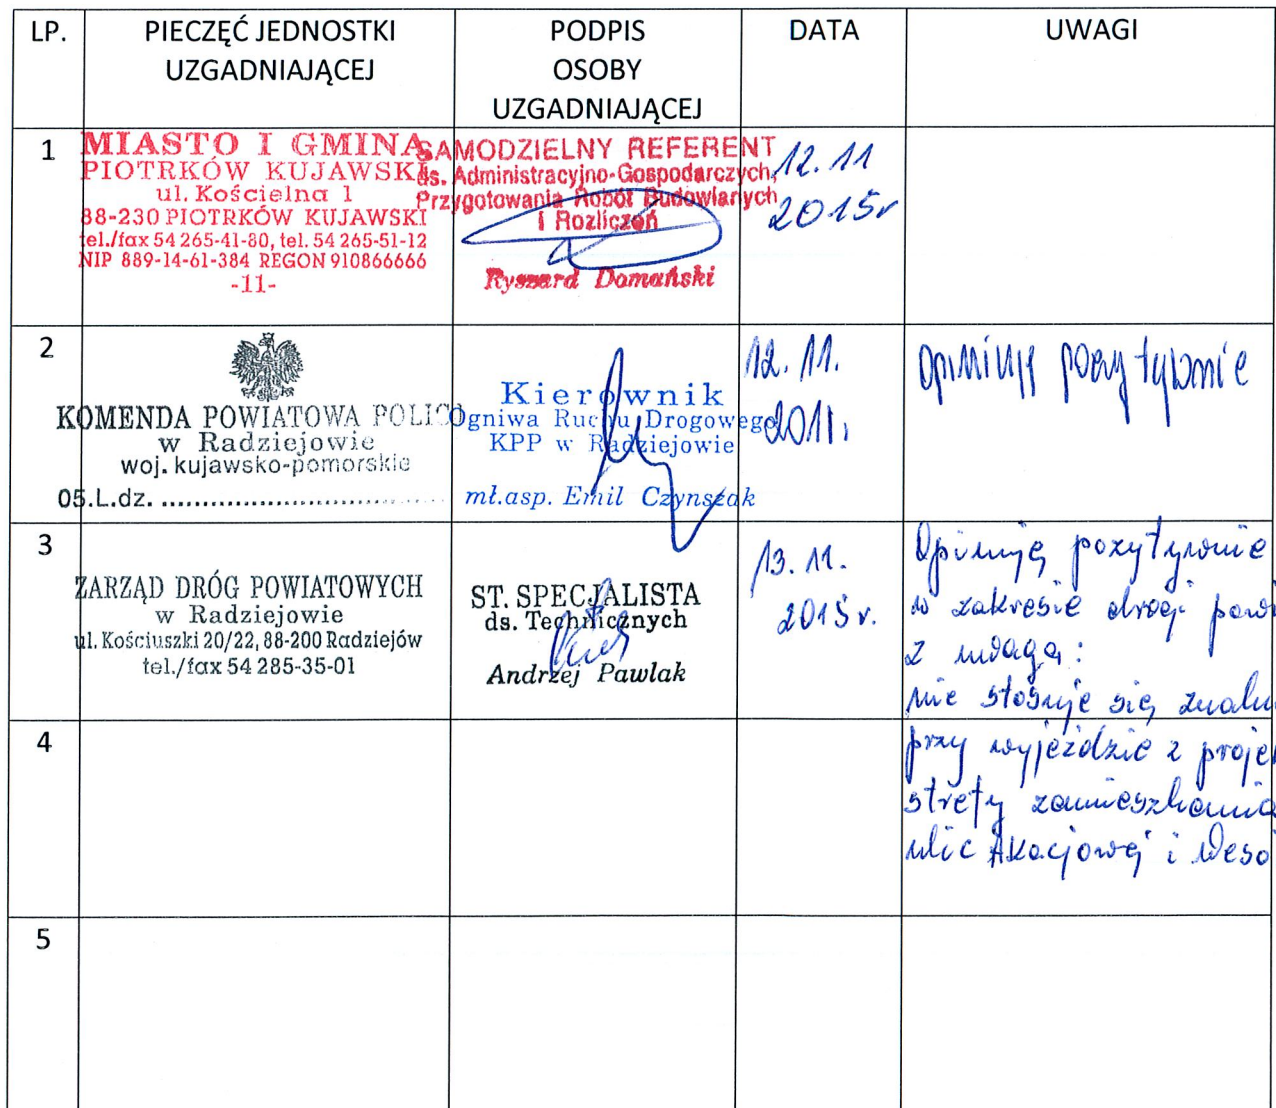 LP.
PIECZĘĆ JEDNOSTKI
UZGADNIAJĄCEJ
PODPIS
OSOBY
UZGADNIAJĄCEJ
DATA
UWAGI
1
MIASTO I GMINA
PIOTRKÓW KUJAWSKI
ul. Kościelna 1
88-230 PIOTRKÓW KUJAWSKI
tel./fax 54 265-41-80, tel. 54 265-51-12
NIP 889-14-61-384 REGON 910866666
-11-
SAMODZIELNY REFERENT
ds. Administracyjno-Gospodarczych,
Przygotowania Robót Budowlanych
i Rozliczeń
Ryszard Domański
12.11
2015r
2
KOMENDA POWIATOWA POLICJ
w Radziejowie
woj. kujawsko-pomorskie
05.L.dz. ....................................
Kierownik
Ogniwa Ruchu Drogowego
KPP w Radziejowie
mł.asp. Emil Czynszak
12.11.
Opiniuję pozytywnie
3
ZARZĄD DRÓG POWIATOWYCH
w Radziejowie
ul. Kościuszki 20/22, 88-200 Radziejów
tel./fax 54 285-35-01
ST. SPECJALISTA
ds. Technicznych
Andrzej Pawlak
13.11.
2015r.
Opiniuję pozytywnie
w zakresie drogi
z uwagą:
nie stosuje się
4
przy wyjeździe z
strefy zamieszkania
ulic Akacjowej i
5